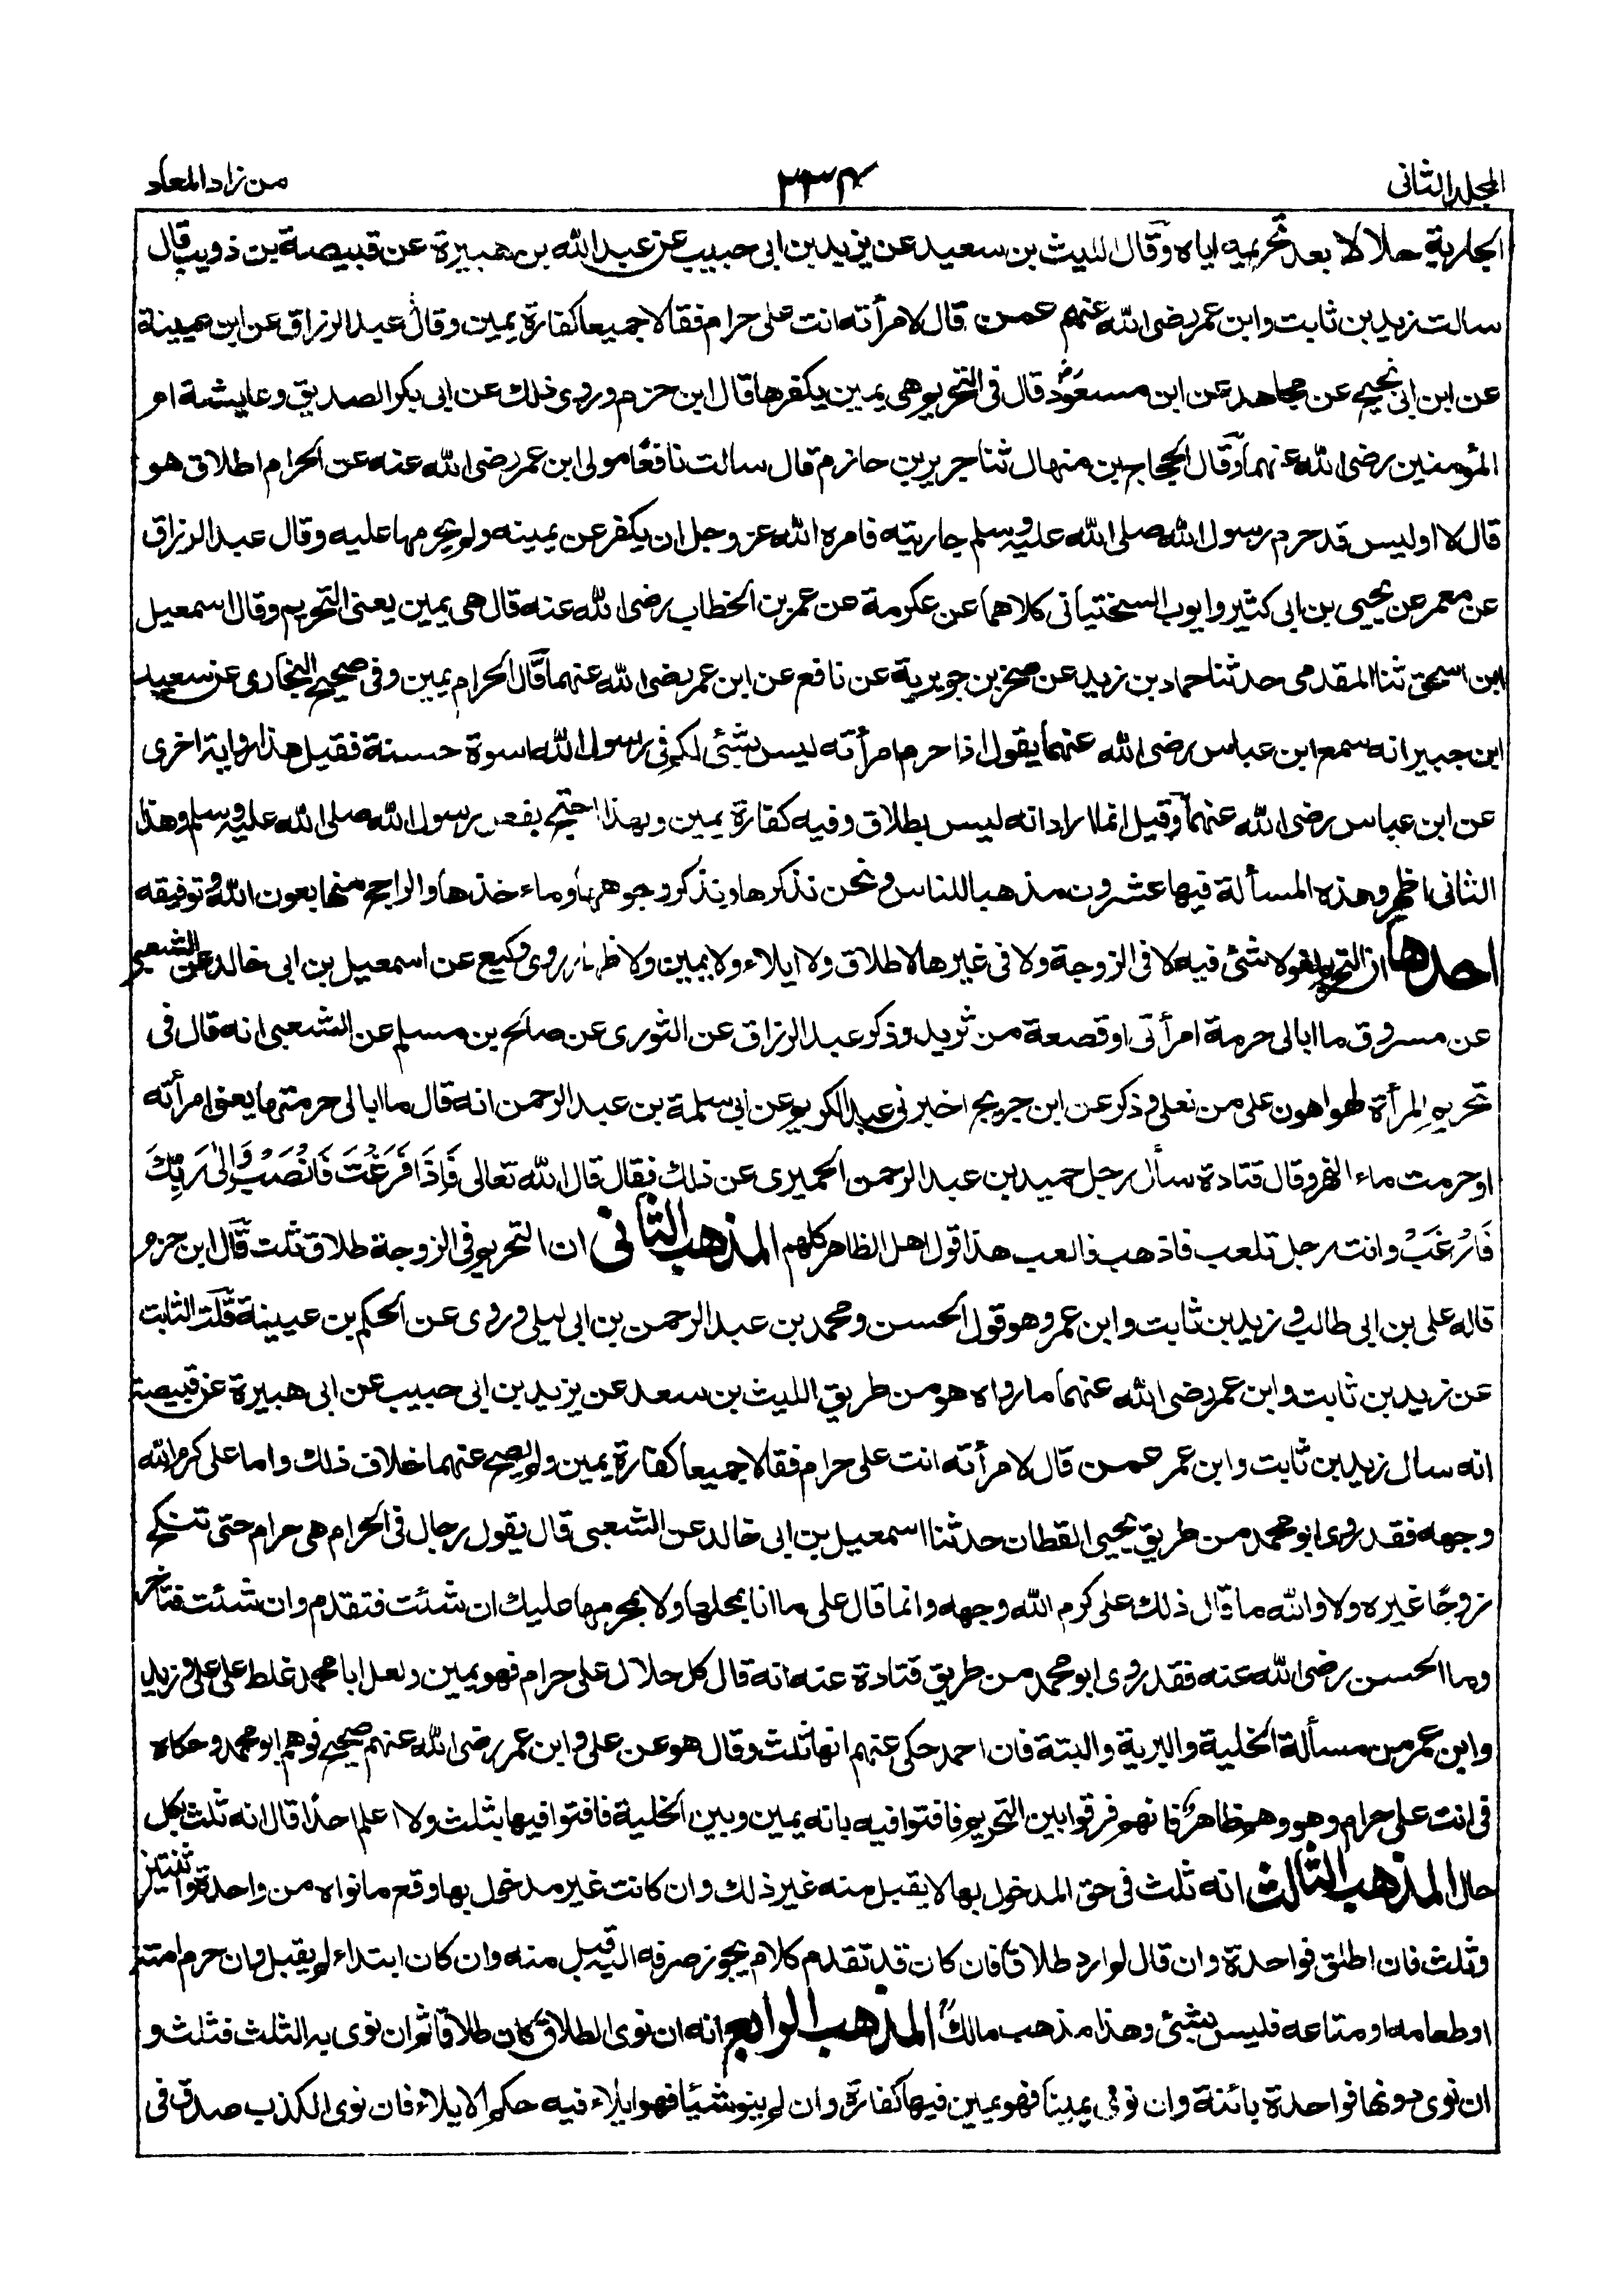 المجلد الثانى
٣٣٤
من زاد المعاد
الجارية حلالا بعد تحريمه اياه وقال الليث بن سعيد عن يزيد بن ابى حبيب عن عبد الله بن هبيرة عن قبيصة بن ذويب قال
سالت زيد بن ثابت وابن عمر رضى الله عنهم عمن قال لامرأته انت على حرام فقالا جميعا كفارة يمين وقال عبد الرزاق عن ابن عيينة
عن ابن ابى نجيح عن مجاهد عن ابن مسعود قال فى التحريم هى يمين يكفرها قال ابن حزم وروى ذلك عن ابى بكر الصديق وعايشة ام
المؤمنين رضى الله عنهما وقال الحجاج بن منهال ثنا جرير بن حازم قال سالت نافعا مولى ابن عمر رضى الله عنه عن الحرام اطلاق هو
قال لا اوليس قد حرم رسول الله صلى الله عليه وسلم جاريته فامره الله عز وجل ان يكفر عن يمينه ولم يحرمها عليه وقال عبد الرزاق
عن معمر عن يحيى بن ابى كثير وايوب السختيانى كلاهما عن عكرمة عن عمر بن الخطاب رضى الله عنه قال هى يمين يعنى التحريم وقال اسمعيل
ابن اسحق ثنا المقدمى حدثنا حماد بن زيد عن صخر بن جويرية عن نافع عن ابن عمر رضى الله عنهما قال الحرام يمين وفى صحيح البخارى عن سعيد
ابن جبير انه سمع ابن عباس رضى الله عنهما يقول اذا حرم امرأته ليس بشئ لكم فى رسول الله اسوة حسنة فقيل هذا رواية اخرى
عن ابن عباس رضى الله عنهما وقيل انما اراد انه ليس بطلاق وفيه كفارة يمين وبهذا احتج بفعل رسول الله صلى الله عليه وسلم وهذا
الثانى اظهر وهذه المسألة فيها عشرون مذهبا للناس ونحن نذكرها ونذكر وجوهها وماءخذها والراجح منها بعون الله وتوفيقه
احدها ان التحريم لغو لا شئ فيه لا فى الزوجة ولا فى غيرها لا طلاق ولا ايلاء ولا يمين ولا ظهار روى وكيع عن اسمعيل بن ابى خالد عن الشعبى
عن مسروق ما ابالى حرمة امرأتى او قصعة من ثريد وذكر عبد الرزاق عن الثورى عن صالح بن مسلم عن الشعبى انه قال فى
تحريم المرأة لهو اهون على من نعلى وذكر عن ابن جريج اخبرنى عبد الكريم عن ابى سلمة بن عبد الرحمن انه قال ما ابالى حرمتها يعنى امرأته
او حرمت ماء النهر وقال قتادة سأل رجل حميد بن عبد الرحمن الحميرى عن ذلك فقال قال الله تعالى فَإِذَا فَرَغْتَ فَانْصَبْ وَإِلَى رَبِّكَ
فَارْغَبْ وانت رجل تلعب فاذهب فالعب هذا قول اهل الظاهر كلهم المذهب الثانى ان التحريم فى الزوجة طلاق ثلث قال ابن حزم
قاله على بن ابى طالب وزيد بن ثابت وابن عمر وهو قول الحسن ومحمد بن عبد الرحمن بن ابى ليلى وروى عن الحكم بن عيينة قلت الثابت
عن زيد بن ثابت وابن عمر رضى الله عنهما ما رواه هو من طريق الليث بن سعد عن يزيد بن ابى حبيب عن ابى هبيرة عن قبيصة
انه سال زيد بن ثابت وابن عمر عمن قال لامرأته انت على حرام فقالا جميعا كفارة يمين ولم يصح عنهما خلاف ذلك واما على كرم الله
وجهه فقد روى ابو محمد من طريق يحيى القطان حدثنا اسمعيل بن ابى خالد عن الشعبى قال يقول رجال فى الحرام هى حرام حتى تنكح
زوجا غيره ولا والله ما قال ذلك على كرم الله وجهه وانما قال على ما انا بمحلها ولا بمحرمها عليك ان شئت فتقدم وان شئت فتأخر
وما الحسن رضى الله عنه فقد روى ابو محمد من طريق قتادة عنه انه قال كل حلال على حرام فهو يمين ولعل ابا محمد غلط على على وزيد
وابن عمر من مسألة الخلية والبرية والبتة فان احمد حكى عنهم انها ثلث وقال هو عن على وابن عمر رضى الله عنهم صحيح فوهم ابو محمد وحكاه
فى انت على حرام وهو وهم ظاهر فانهم فرقوا بين التحريم فافتوا فيه بانه يمين وبين الخلية فافتوا فيها بثلث ولا اعلم احدا قال انه ثلث بكل
حال المذهب الثالث انه ثلث فى حق المدخول بها لا يقبل منه غير ذلك وان كانت غير مدخول بها وقع ما نواه من واحدة واثنتين
وثلث فان اطلق فواحدة وان قال لم ارد طلاقا فان كان قد تقدم كلام يجوز صرفه اليه قبل منه وان كان ابتداء لم يقبل وان حرم امته
او طعامه او متاعه فليس بشئ وهذا مذهب مالك المذهب الرابع انه ان نوى الطلاق كان طلاقا ثم ان نوى به الثلث فثلث و
ان نوى دونها فواحدة بائنة وان نوى يمينا فهو يمين فيها كفارة وان لم ينو شيئا فهو ايلاء فيه حكم الايلاء فان نوى الكذب صدق فى